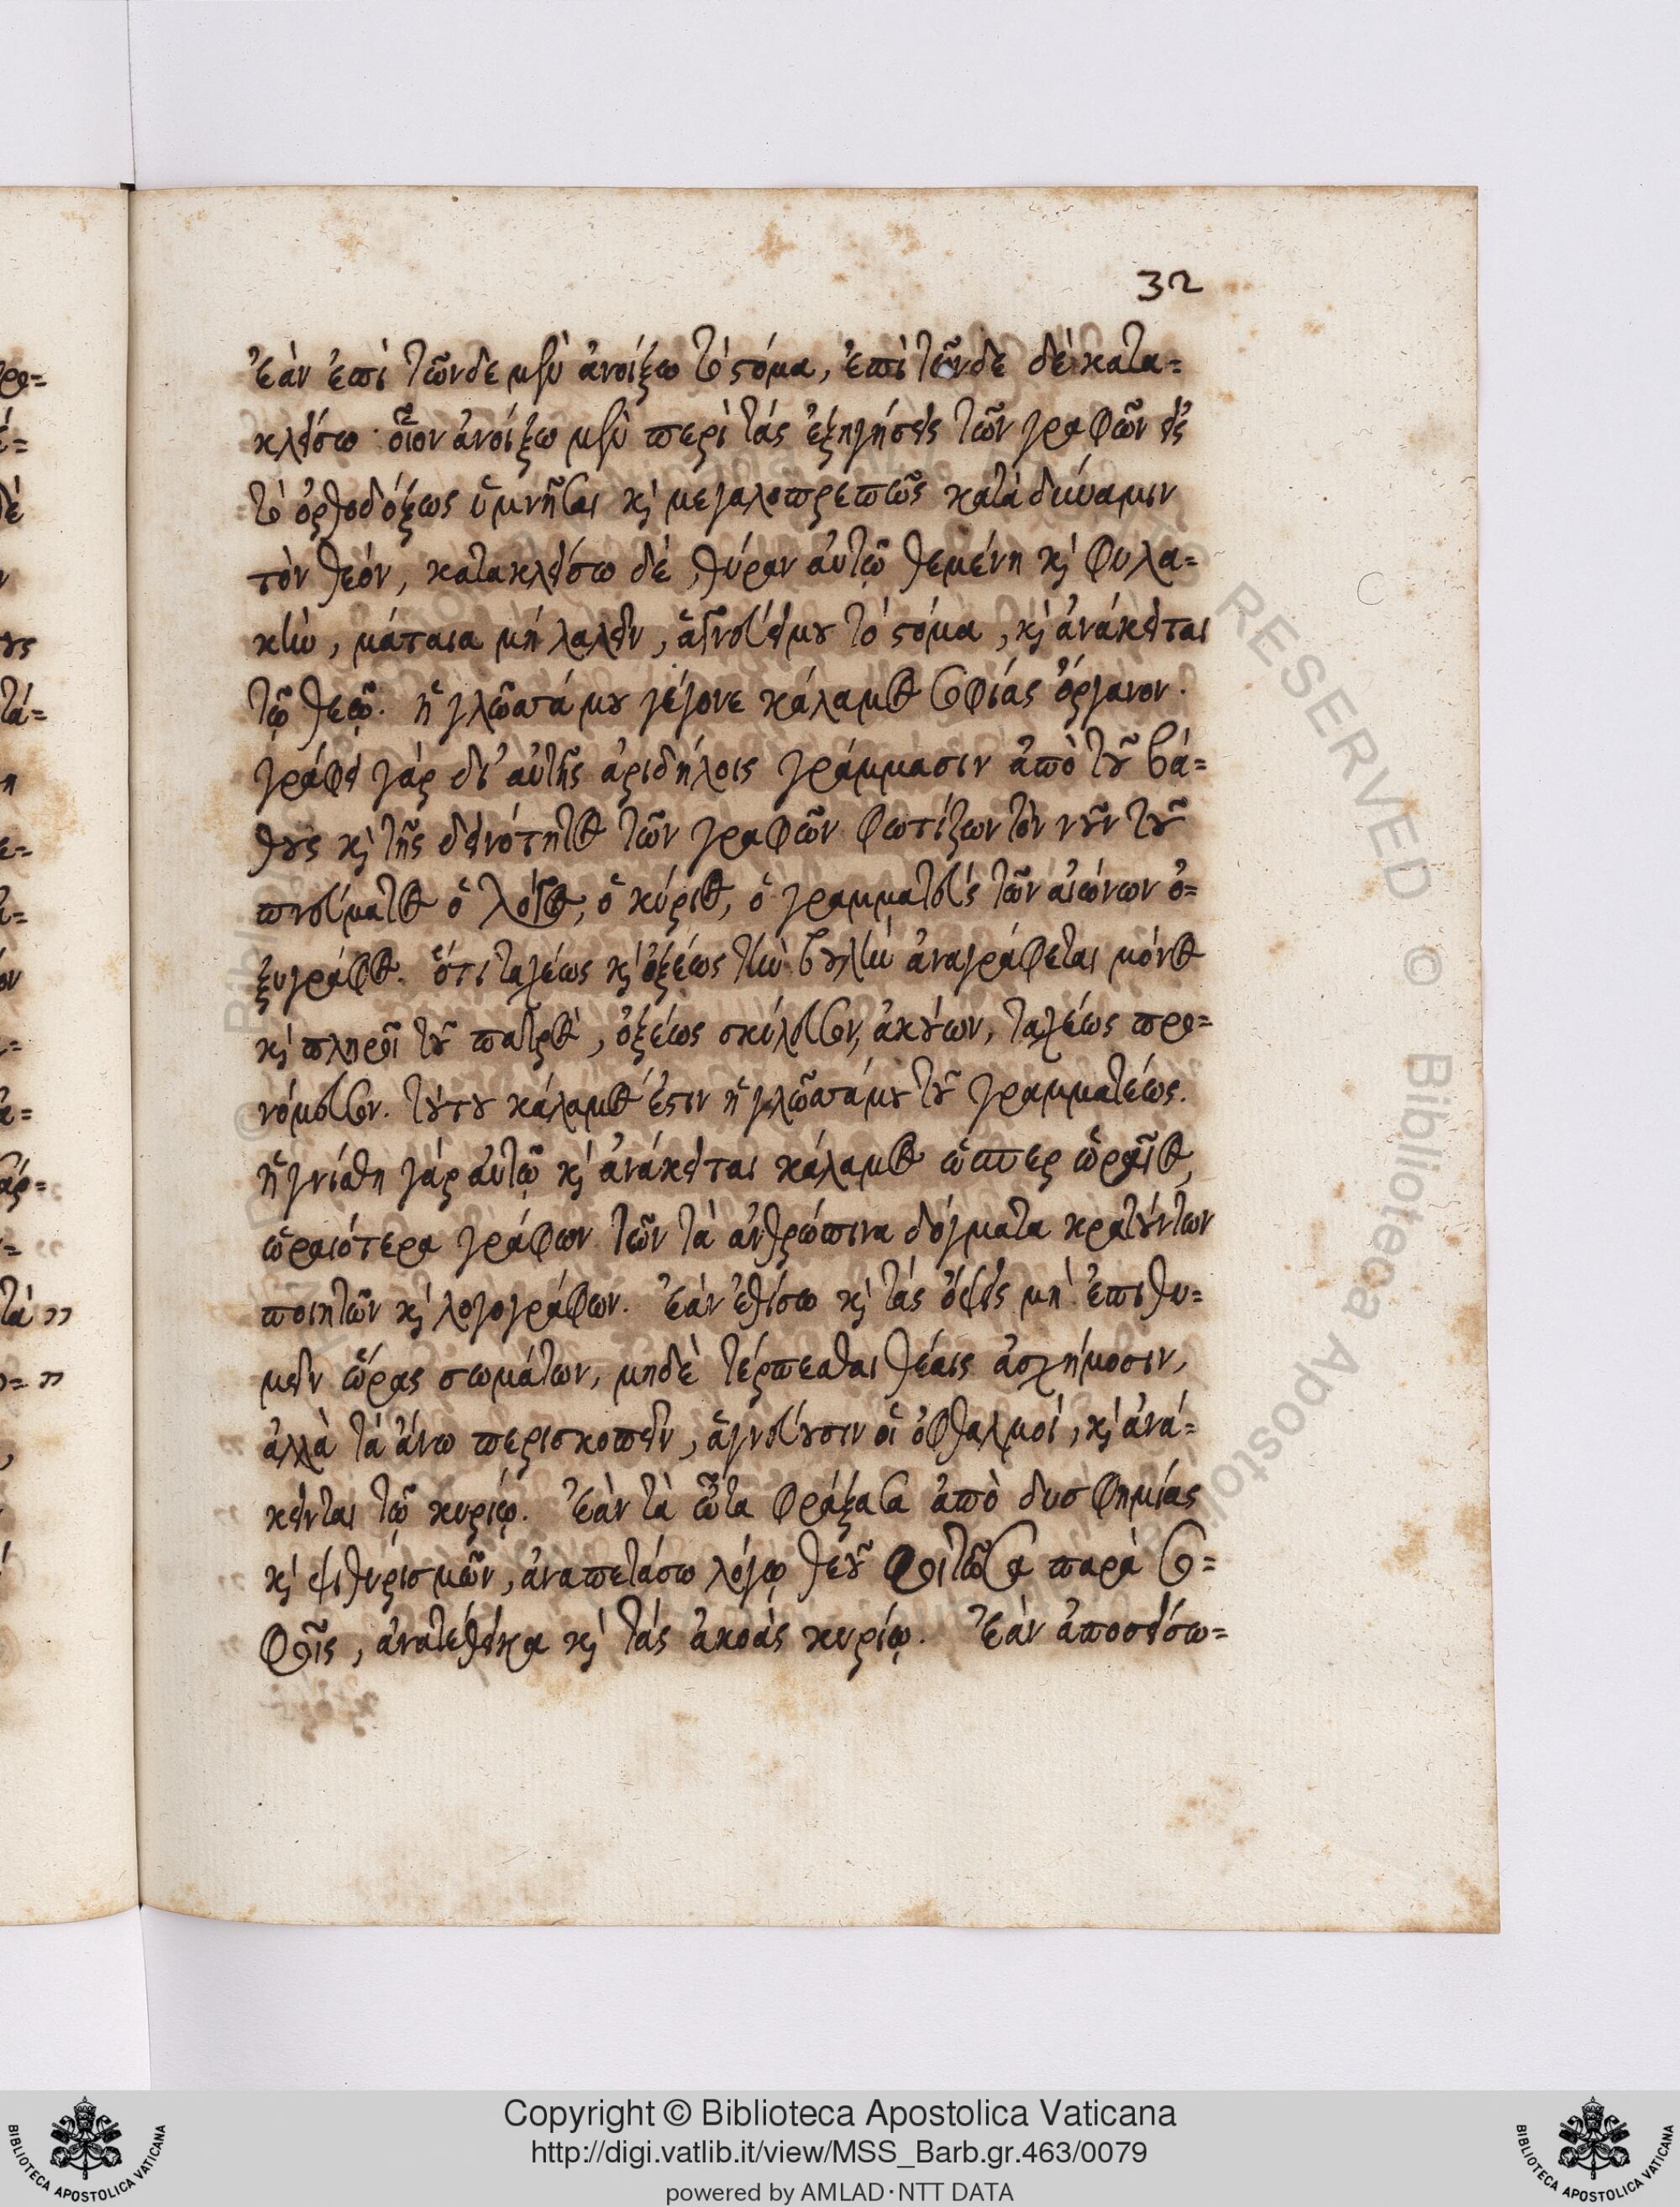 32
ἐὰν ἐπὶ τῶνδε μὲν ἀνοίξω τὸ στόμα, ἐπὶ τῶνδε δὲ κατα=
κλείσω· οἷον ἀνοίξω μὲν περὶ τὰς ἐξηγήσεις τῶν γραφῶν εἰς
τὸ ὀρθοδόξως ὑμνῆσαι κὶ μεγαλοπρεπῶς κατὰ δύναμιν
τὸν θεόν, κατακλείσω δὲ, θύραν αὐτῷ θεμένη κὶ φυλα=
κὴν, μάταια μὴ λαλεῖν, ἁγνεύει μου τὸ στόμα, κὶ ἀνάκειται
τῷ θεῷ. ἡ γλῶσσά μου γέγονε κάλαμος σοφίας ὄργανον.
γράφει γάρ δι' αὐτῆς ἀριδήλοις γράμμασιν ἀπὸ τοῦ βά=
θους κὶ τῆς δεινότητος τῶν γραφῶν φωτίζων τὸν νοῦν τοῦ
πνεύματος ὁ λόγος, ὁ κύριος, ὁ γραμματεὺς τῶν αἰώνων ὁ=
ξυγράφος. ὅτι ταχέως κὶ ὀξέως τὴν βουλὴν ἀναγράφεται μόνος
κὶ πληροῖ τοῦ πατρὸς, ὀξέως σκύλευσον, ἀκούων, ταχέως προ=
νόμευσον. τούτου κάλαμος ἐστιν ἡ γλῶσσά μου τοῦ γραμματέως.
ἡγνίσθη γάρ αὐτῷ κὶ ἀνάκειται κάλαμος ὥσπερ ὡραῖος,
ὡραιότερα γράφων τῶν τὰ ἀνθρώπινα δόγματα κρατούντων
ποιητῶν κὶ λογογράφων. Ἐὰν ἐθίσω κὶ τὰς ὄψεις μὴ ἐπιθυ=
μεῖν ὥρας σωμάτων, μηδὲ τέρπεσθαι θέαις ἀσχήμοσιν,
ἀλλὰ τὰ ἄνω περισκοπεῖν, ἁγνεύουσιν οἱ ὀφθαλμοί, κὶ ἀνά=
κεινται τῷ κυρίῳ. Ἐὰν τὰ ὦτα φράξασα ἀπὸ δυσφημίας
κὶ ψιθυρισμῶν, ἀναπετάσω λόγῳ θεοῦ φοιτῶσα παρὰ σο=
φοῖς, ἀνατέθεικα κὶ τὰς ἀκοὰς κυρίῳ. Ἐὰν ἀποσείσω=
Copyright © Biblioteca Apostolica Vaticana
http://digi.vatlib.it/view/MSS_Barb.gr.463/0079
powered by AMLAD·NTT DATA
BIBLIOTECA APOSTOLICA VATICANA
BIBLIOTECA APOSTOLICA VATICANA